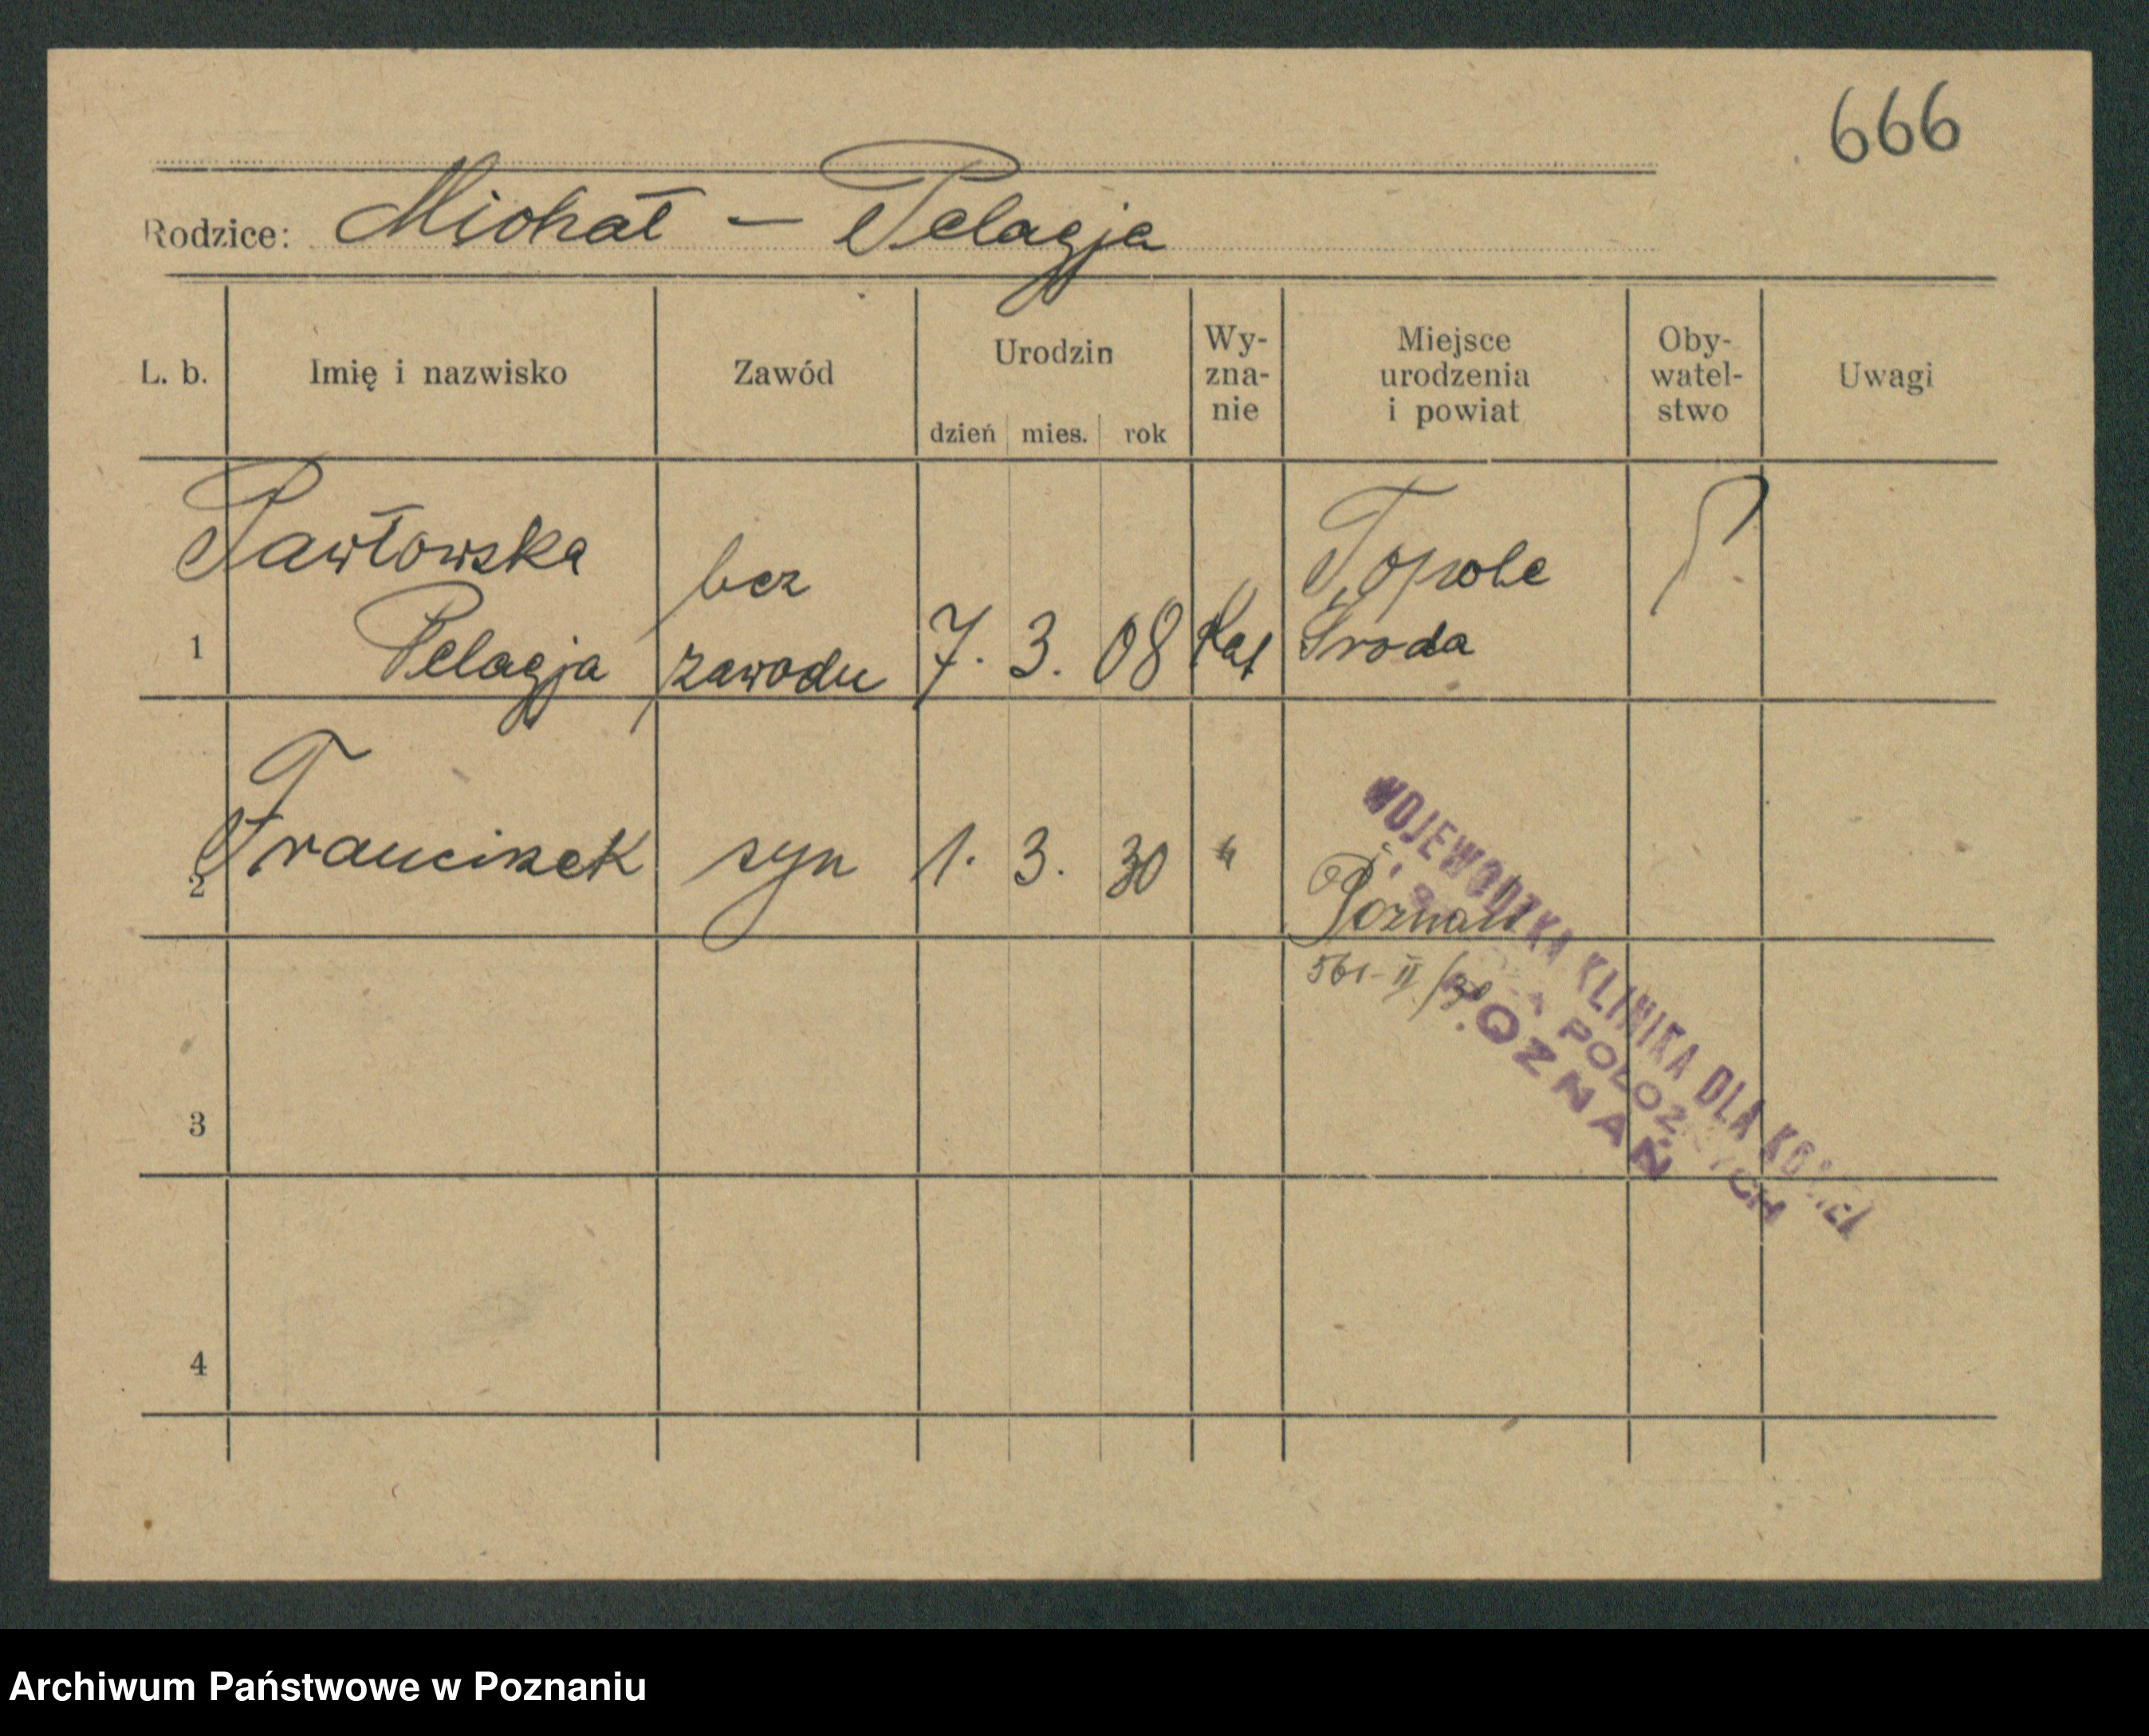 666
Rodzice: Michał — Pelagja
L. b.
Imię i nazwisko
Zawód
Urodzin
dzień
mies.
rok
Wy-
zna-
nie
Miejsce
urodzenia
i powiat
Oby-
watel-
stwo
Uwagi
Pawłowska
Pelagja
1
bez
zawodu
7. 3. 08
Kat
Topole
Środa
P
2
Franciszek
syn
1. 3. 30
"
Poznań
561-II/30
WOJEWÓDZKA KLINIKA DLA KOBIET
POŁOŻNYCH
POZNAŃ
3
4
Archiwum Państwowe w Poznaniu